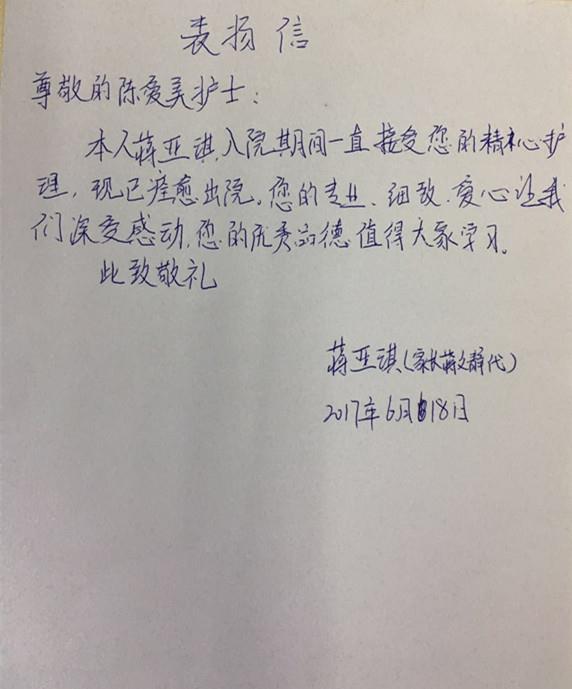 表扬信
尊敬的陈爱美护士:
本人蒋亚琪,入院期间一直接受您的精心护
理,现已痊愈出院。您的专业、细致、爱心让我
们深受感动,您的优秀品德值得大家学习。
此致敬礼
蒋亚琪(家长蒋文静代)
2017年6月18日